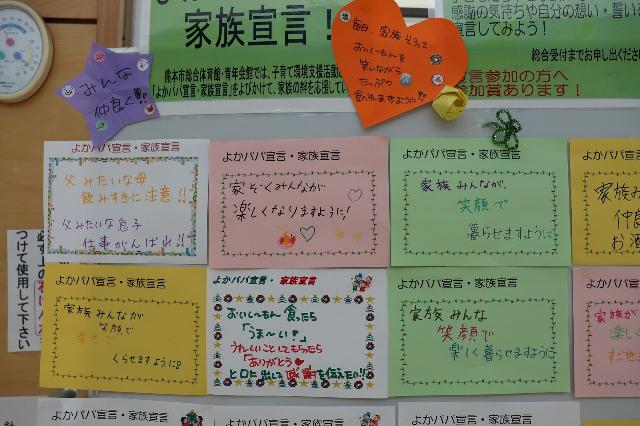 家族宣言！
熊本市総合体育館・青年会館では、子育て環境支援活動
「よかパパ宣言・家族宣言」をよびかけて、家族の絆を応援してい
感謝の気持ちや自分の想い・誓い
宣言してみよう！
総合受付までお申し出くださ
宣言参加の方へ
参加賞あります！
みんな
仲良く!!
毎日、家族そろって
おいし〜もんを
笑いながら
たっぷり
食べれますように!!
よかパパ宣言・家族宣言
父みたいな母
飲みすぎに注意!!
父みたいな息子
仕事がんばれ!!
よかパパ宣言・家族宣言
家ぞくみんなが
楽しくなりますように!
よかパパ宣言・家族宣言
家族みんなが、
笑顔で
暮らせますように
よかパパ宣
家族み
仲良
お酒
つけて使用して下さい
よかパパ宣言・家族宣言
家族みんなが
笑顔で
幸せで
くらせますように!!
よかパパ宣言・家族宣言
おいし〜もん食ったら
「うま〜い!」
うれしいことしてもらったら
「ありがとう」
と口に出して感謝を伝えたい!!
よかパパ宣言・家族宣言
家族みんな
笑顔で
楽しく暮らせますように
よかパパ宣
家族が
楽し
すご
よかパパ宣言・家族宣言
よかパパ宣言・家族宣言
よかパパ宣言・家族宣言
よかパパ宣